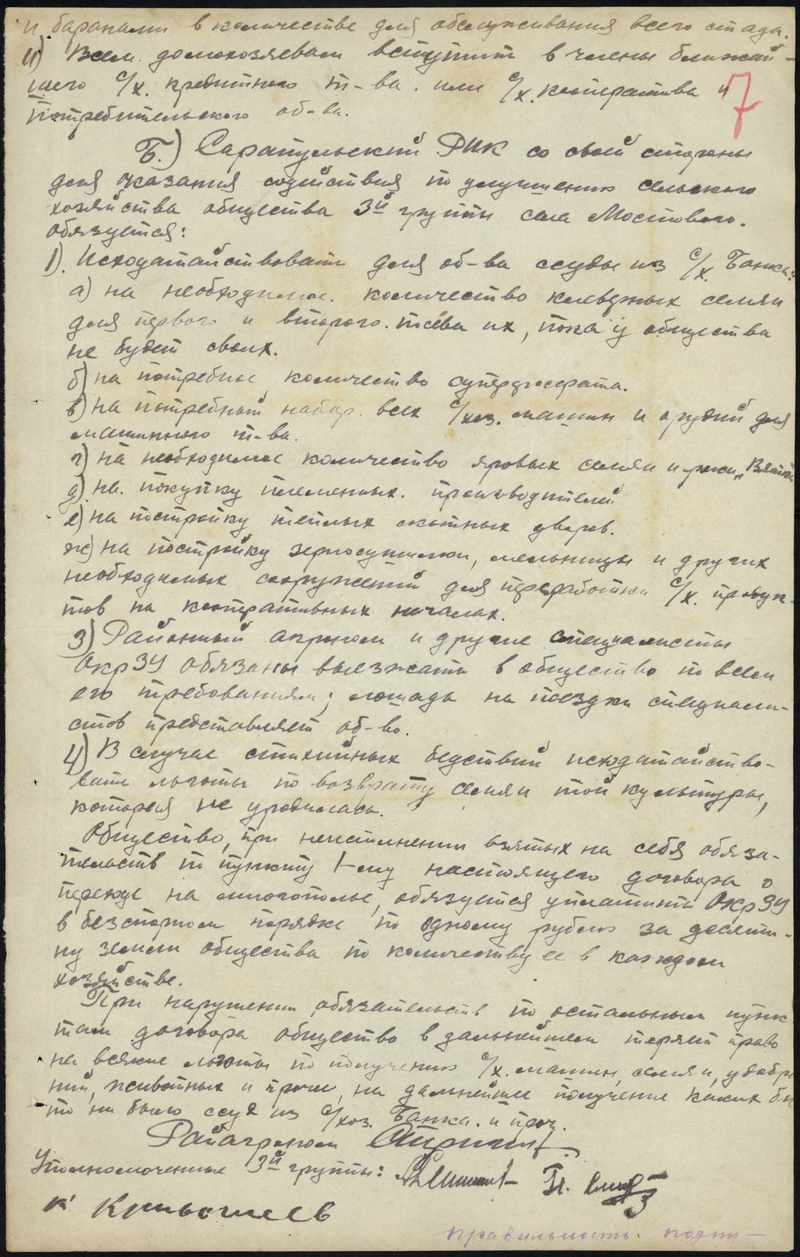 и баранами в количестве для обслуживания всего стада.
11) Всем домохозяевам вступить в члены ближай-
шего с/х. кредитного т-ва. или с/х. кооператива и
потребительского об-ва.
7
Б.) Сарапульский РИК со своей стороны
для оказания содействия по улучшению сельского
хозяйства общества 3й группы села Мостового.
обязуется:
1). Исходатайствовать для об-ва ссуды из с/х. Банка:
а) на необходимое. количество клеверных семян
для первого и второго. посева их, пока у общества
не будет своих.
б) на потребное количество суперфосфата.
в) на потребный набор. всех с/хоз. машин и орудий для
машинного т-ва.
г) на необходимое количество яровых семян и ржи „Вятка
д) на. покупку племенных. производителей
е) на постройку теплых скотных дворов.
ж) на постройку зерносушилки, мельницы и других
необходимых сооружений для переработки с/х. продук-
тов на кооперативных началах.
3) Районный агроном и другие специалисты
ОкрЗУ обязаны выезжать в общество по всем
его требованиям; лошадь на поездки специали-
стов представляет об-во.
4) В случае стихийных бедствий исходатайство-
вать льготы по возврату семян той культуры,
которая не уродилась.
Общество, при неисполнении взятых на себя обяза-
тельств по пункту 1-му настоящего договора о
переходе на многополье, обязуется уплатить ОкрЗУ
в безспорном порядке по одному рублю за десяти-
ну земли общества по количеству ее в каждом
хозяйстве.
При нарушении обязательств по остальным пунк
там договора общество в дальнейшем теряет право
на всякие льготы по получению с/х. машин, семян, удобре
ний, животных и проч, на дальнейшее получение каких бы
то ни было ссуд из с/хоз. Банка. и проч.
Райагроном
Уполномоченные 3й группы:
К Кривошеев
правильность. подпи-